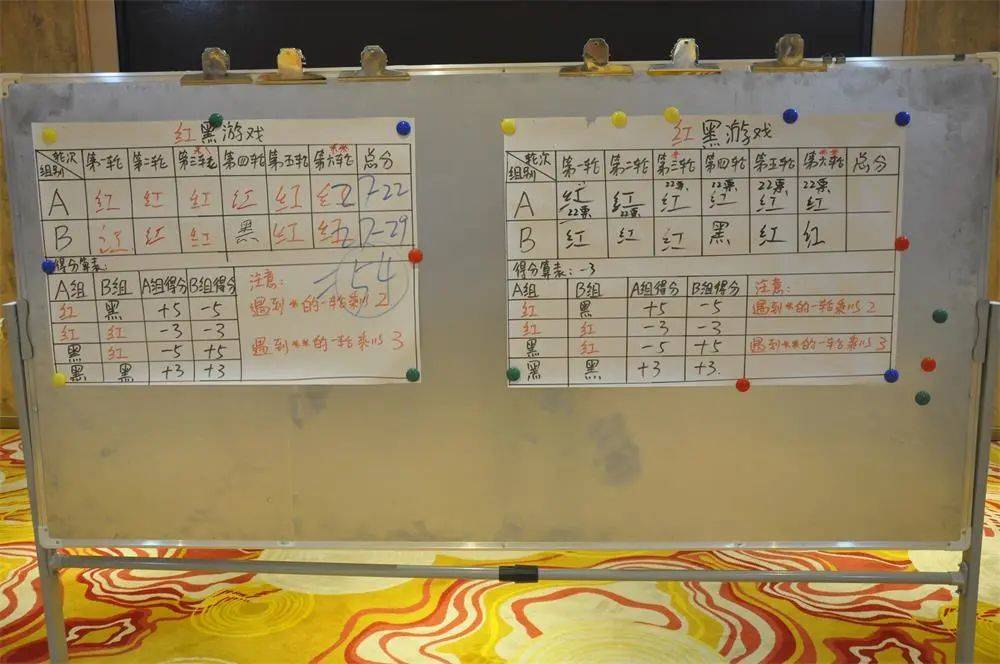 红黑游戏
轮次 组别 第一轮 第二轮 第三轮 第四轮 第五轮 第六轮 总分
*
**
A 红 红 红 红 红 红 27-22
B 红 红 红 黑 红 红 27-29
=54
得分算表:
A组 B组 A组得分 B组得分
红 黑 +5 -5
红 红 -3 -3
黑 红 -5 +5
黑 黑 +3 +3
注意:
遇到*的一轮乘以2
遇到**的一轮乘以3
红黑游戏
轮次 组别 第一轮 第二轮 第三轮 第四轮 第五轮 第六轮 总分
*
**
22票 22票 22票 22票
A 红 红 红 红 红 红
22票 22票
B 红 红 红 黑 红 红
得分算表: -3
A组 B组 A组得分 B组得分
红 黑 +5 -5
红 红 -3 -3
黑 红 -5 +5
黑 黑 +3 +3
注意:
遇到*的一轮乘以2
遇到**的一轮乘以3